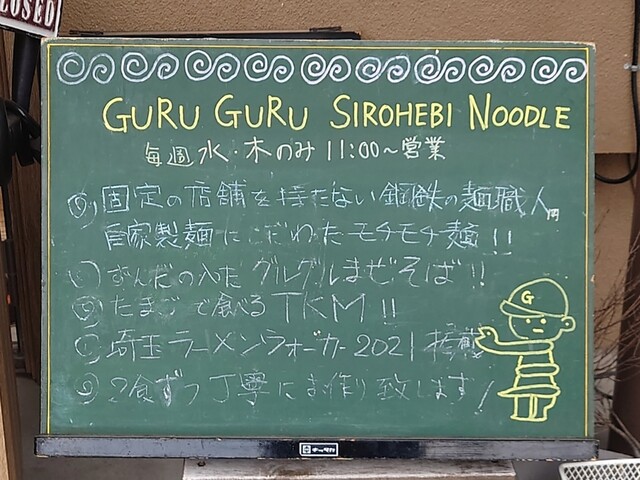 CLOSED
GURU GURU SIROHEBI NOODLE
毎週 水・木のみ 11:00～営業
固定の店舗を持たない鋼鉄の麺職人
自家製麺にこだわったモチモチ麺!!
ずんだの入った グルグルまぜそば!!
たまごで食べる TKM!!
埼玉ラーメンウォーカー2021 掲載
2食ずつ丁寧にお作り致します!
G